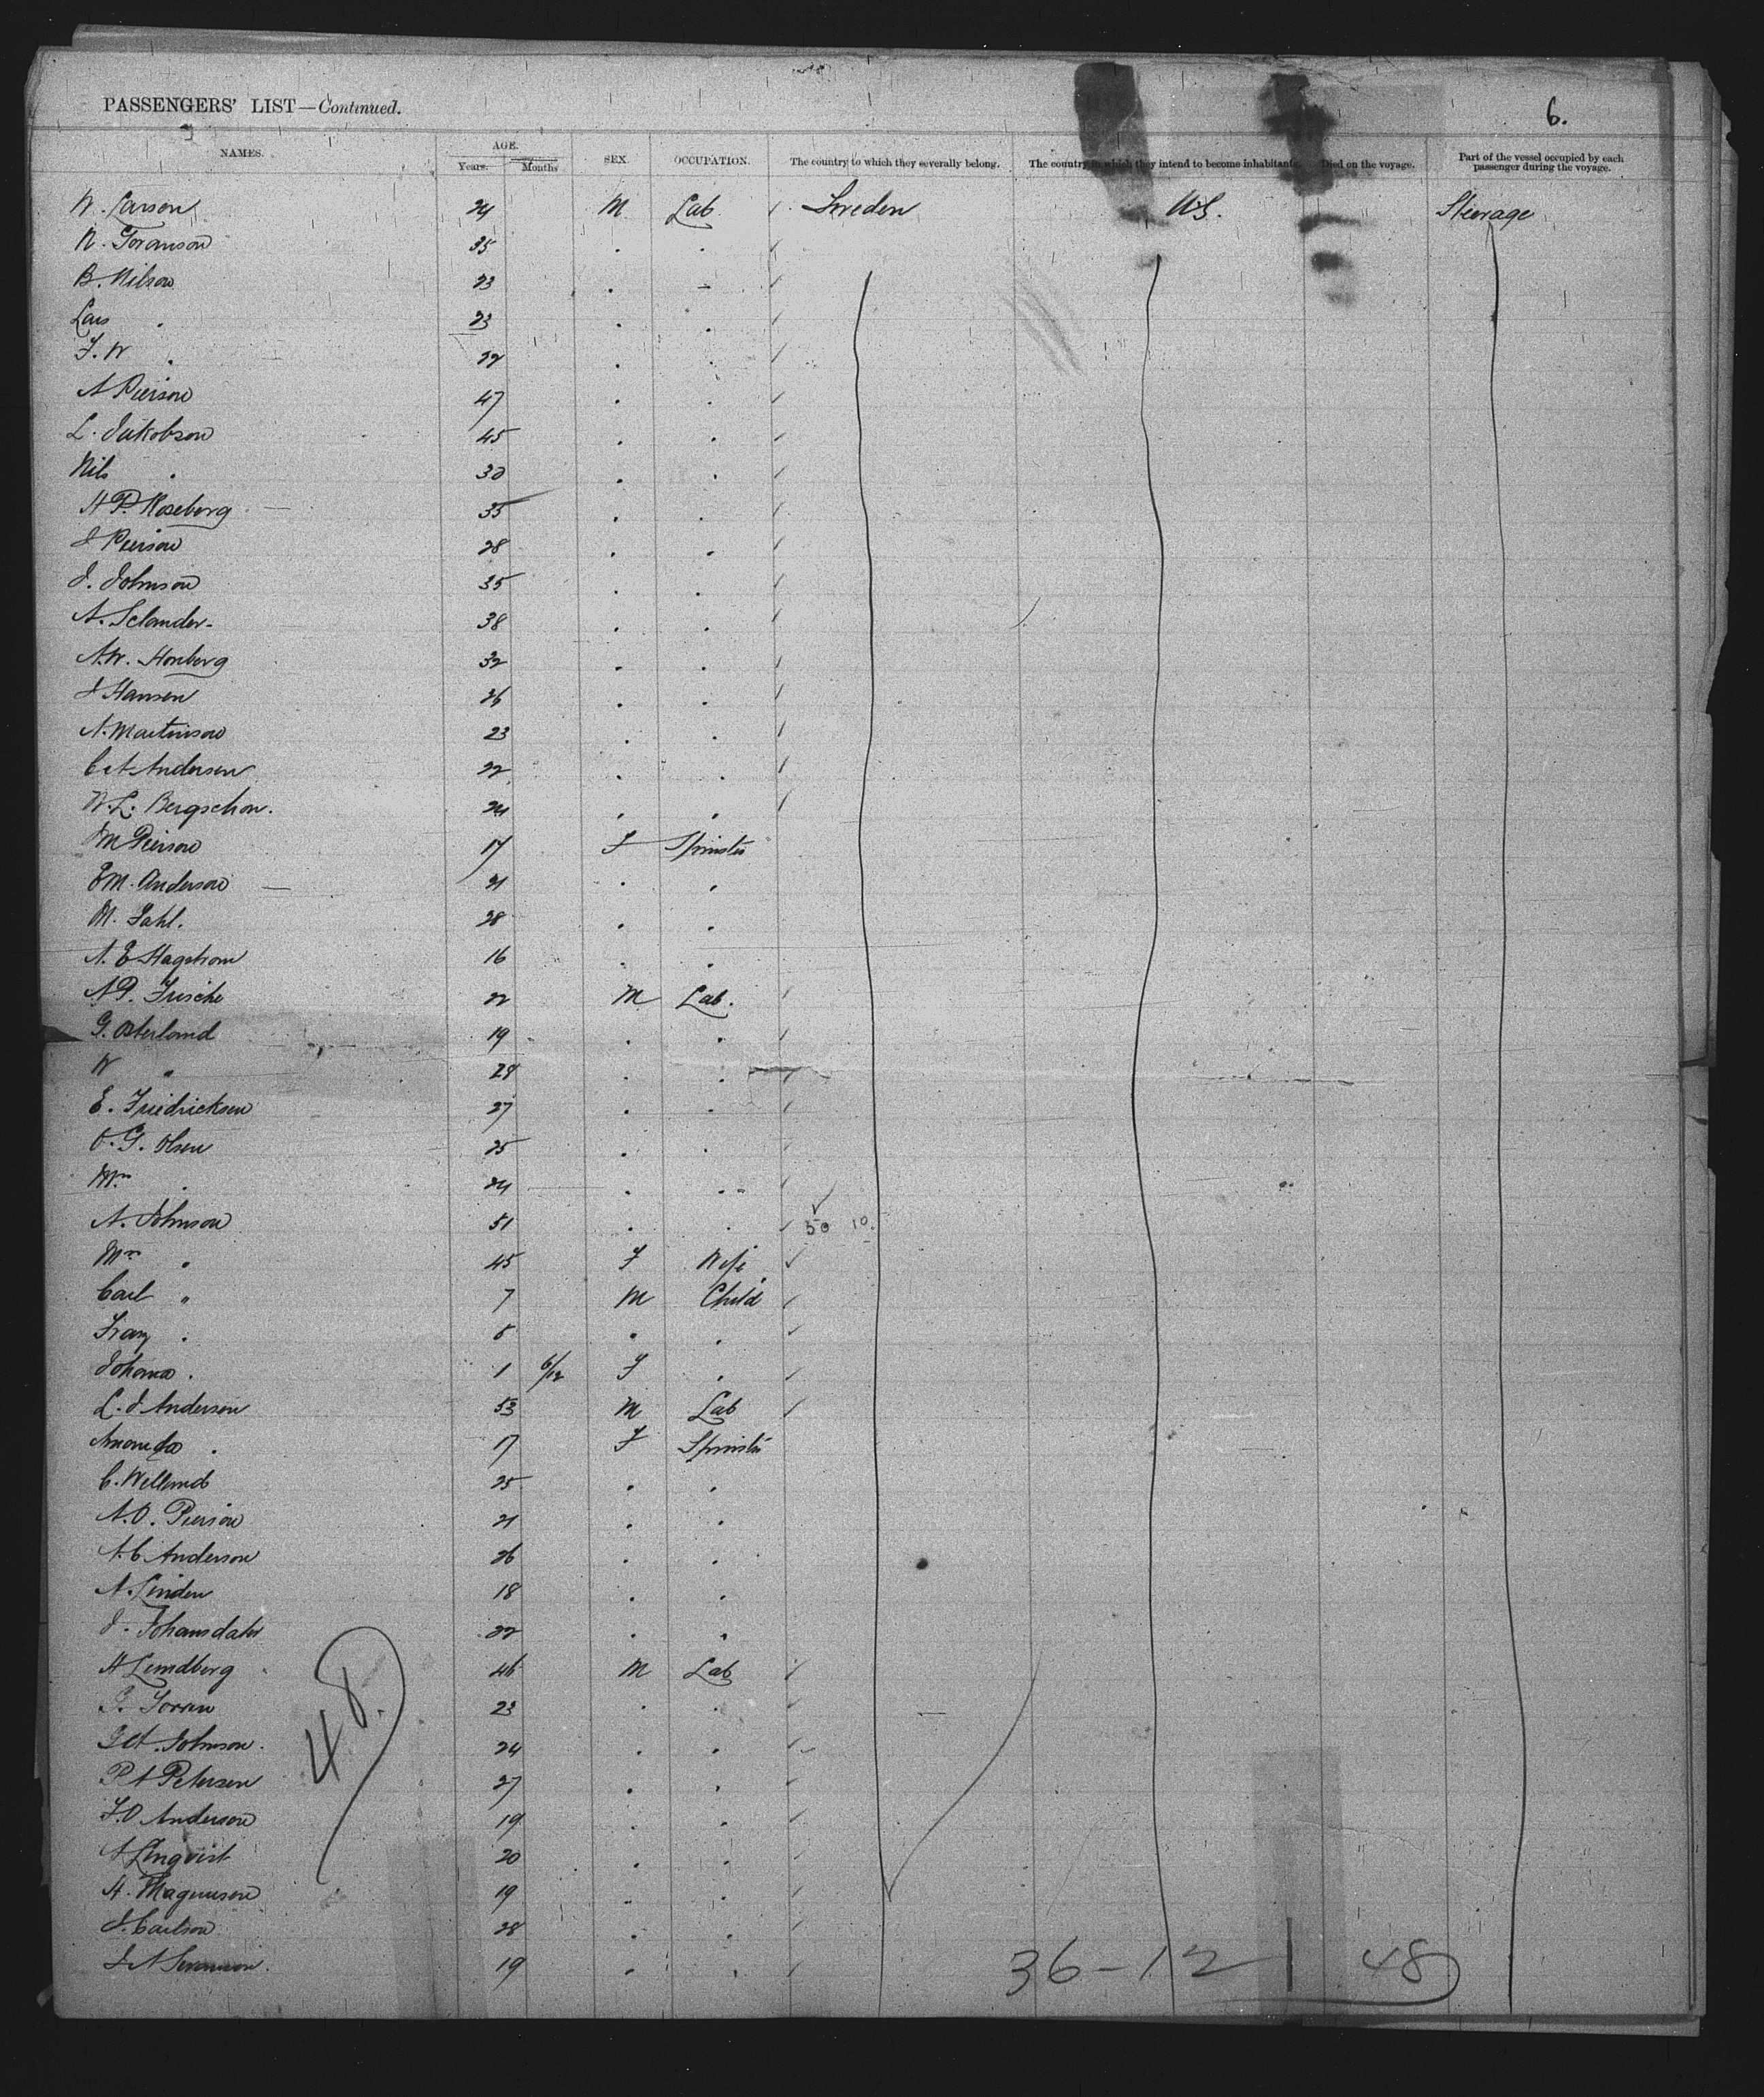 PASSENGERS' LIST—Continued. 6.
NAMES. AGE. Years. Months SEX. OCCUPATION. The country to which they severally belong. The country to which they intend to become inhabitants. Died on the voyage. Part of the vessel occupied by each passenger during the voyage.
N. Larson 24 M Lab Sweden U.S. Steerage
N. 35 . .
B. Nilson 23 . .
Lars . 23 . .
F. W . 22 . .
A Pierson 47 . .
L. Jakobson 45 . .
Nils . 30 . .
H P. Roseberg 35 . .
J Pierson 28 . .
J. Johnson 35 . .
A. Selander 38 . .
A.W. Honberg 32 . .
J Hansen 26 . .
A. Martinson 23 . .
C A Andersen 22 . .
N. L. 24 . .
M Pierson 17 F Spinster
E M. Anderson 21 . .
M. 28 . .
A. E Hagstrom 16 . .
A P. 22 M Lab.
G. Osterland 19 . .
W " 24 . .
E. Friedricksen 27 . .
O. G. Olsen 25 . .
Wm . 24 . .
A. Johnson 51 . . 50 10.
Mrs " 45 F Wife
Carl " 7 M Child
Franz . 8 . .
Johanna . 1 6/12 F .
L. J Andersen 53 M Lab
Amanda . 17 F Spinster
C. 25 . .
A. O. Pierson 21 . .
A. C Anderson 26 . .
A. Linden 18 . .
J. 22 . .
H Lundberg 46 M Lab
23 . .
Johnson. 24 . .
P A Petersen 27 . .
F. O Anderson 19 . .
A Linqvist 20 . .
H. Magnuson 19 . .
J. Carlson 28 . .
J A Swanson. 19 . .
48.
36-12 | 48